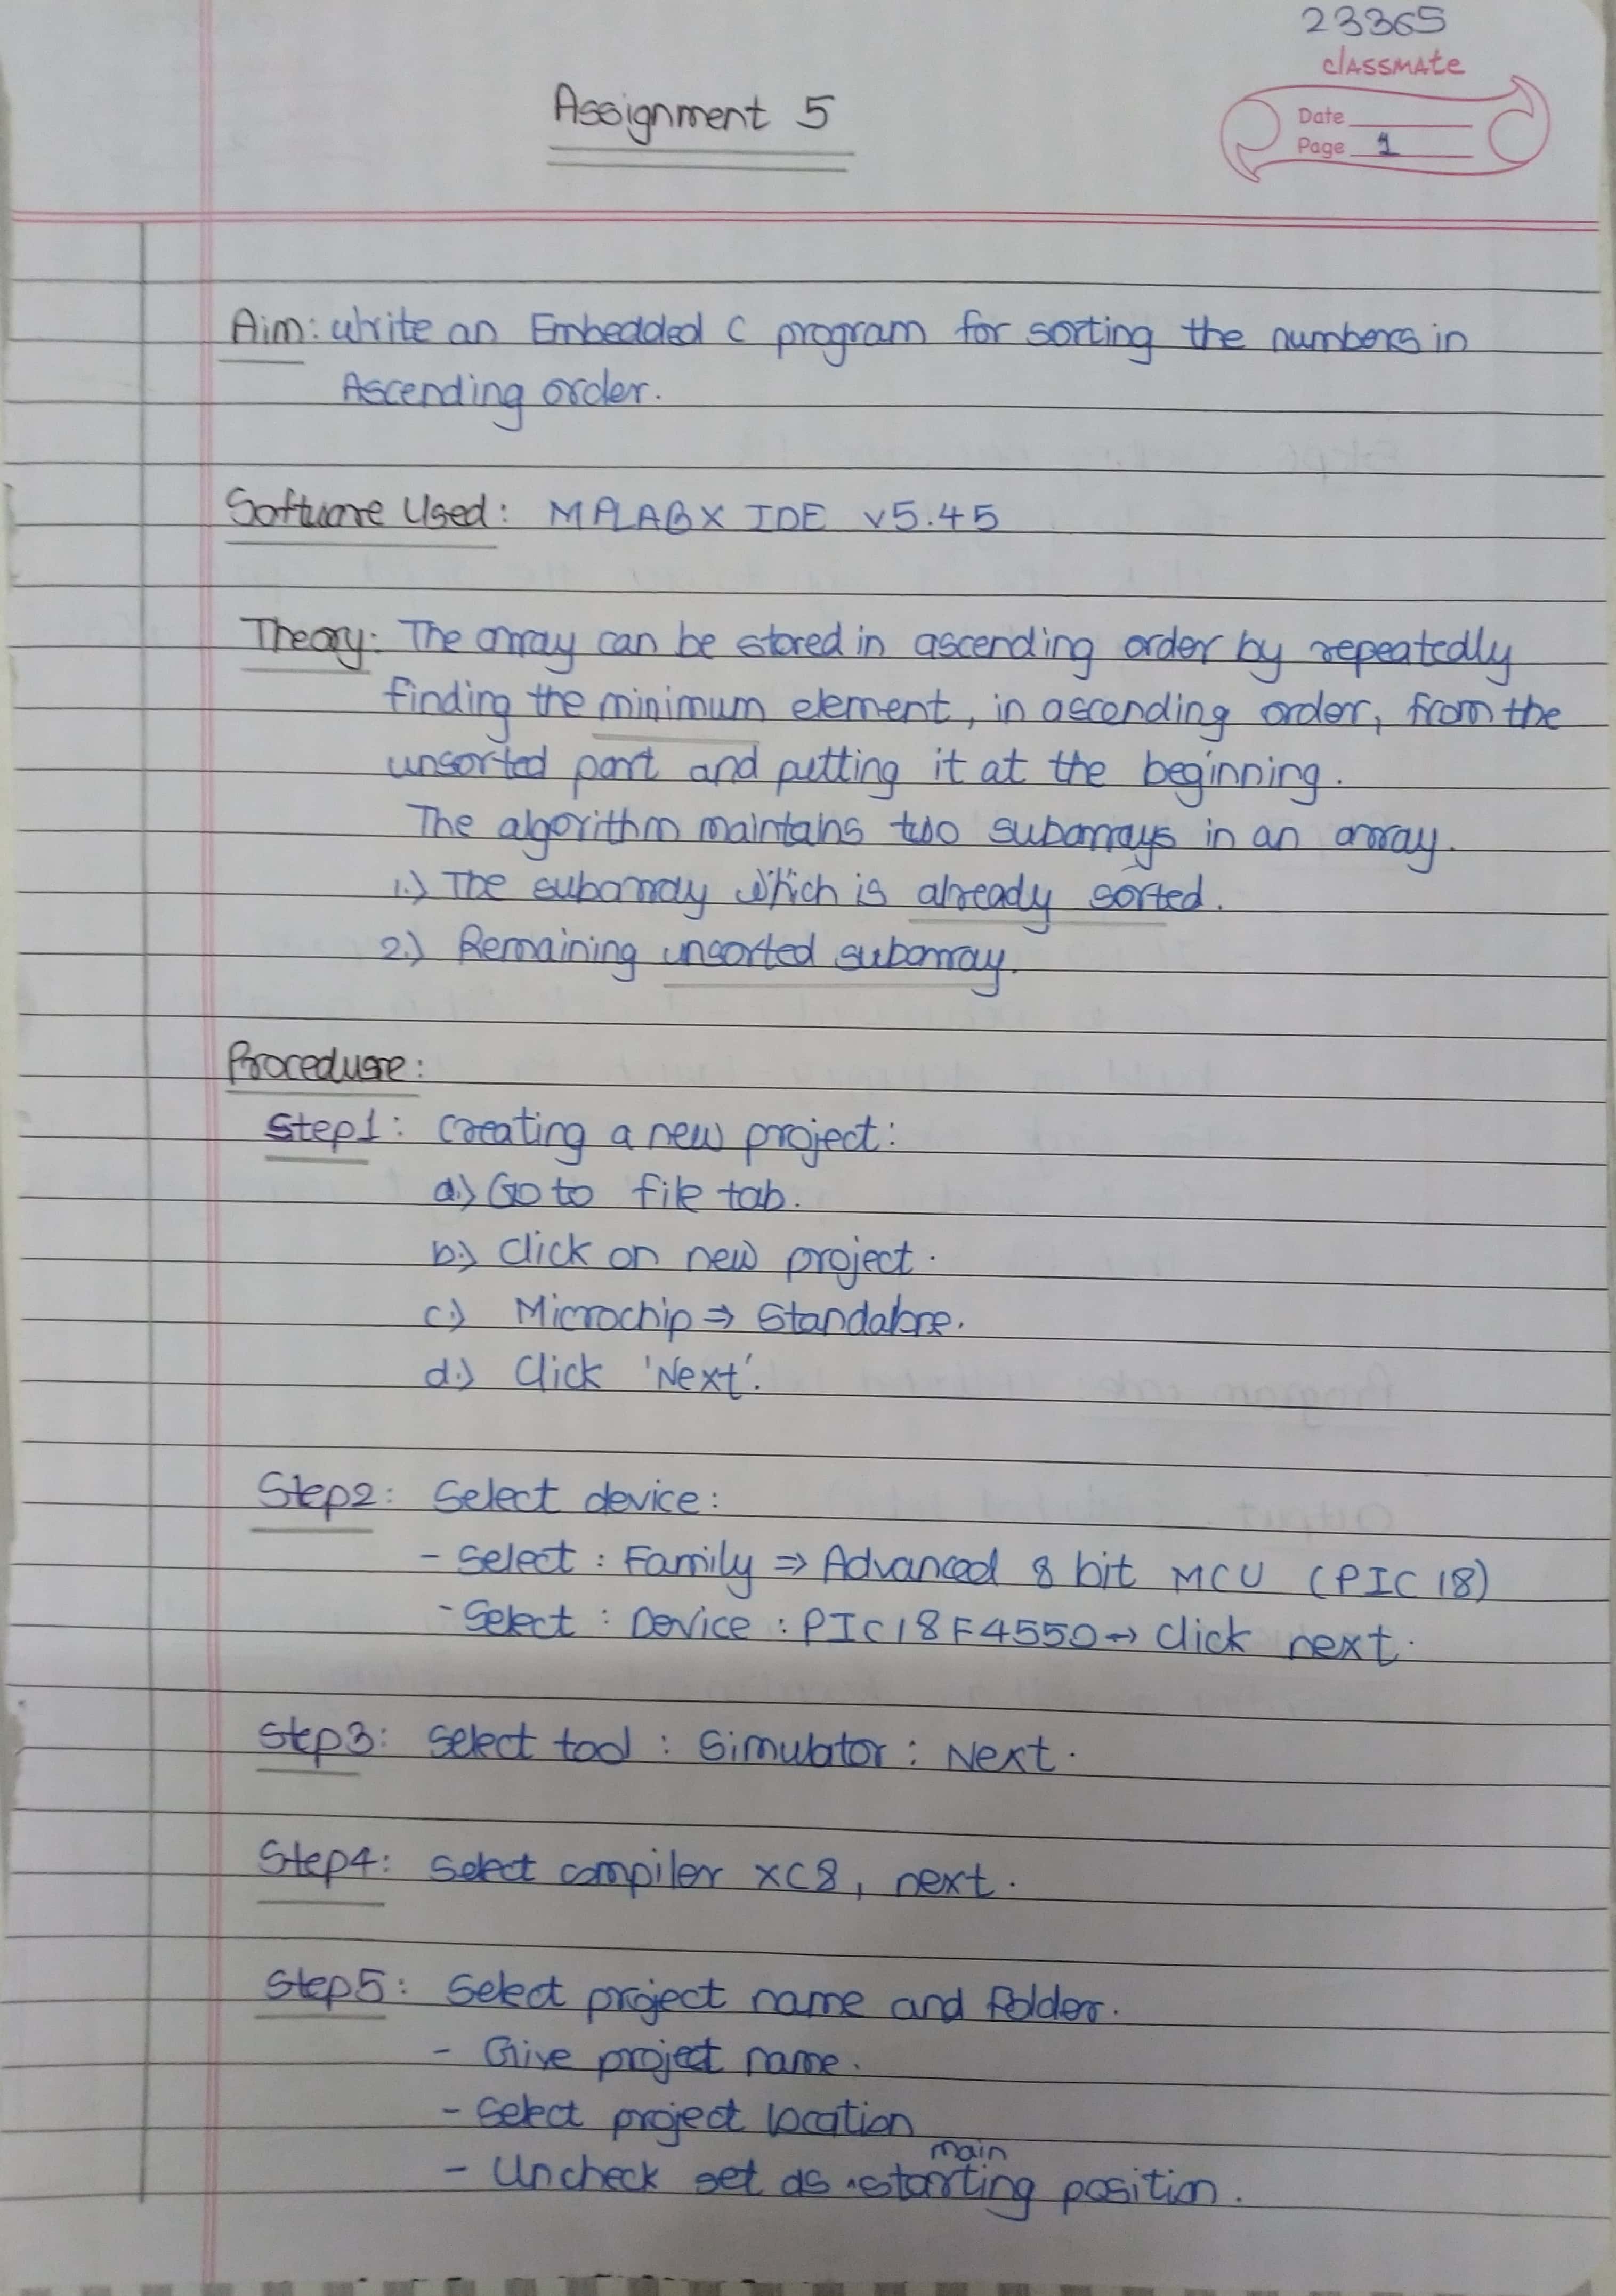 23365
classmate
Assignment 5
Date
Page 1
Aim: Write an Embedded C program for sorting the numbers in
Ascending order.
Software Used: MPLAB X IDE v5.45
Theory: The array can be stored in ascending order by repeatedly
finding the minimum element, in ascending order, from the
unsorted part and putting it at the beginning.
The algorithm maintains two subarrays in an array.
1.) The subarray which is already sorted.
2.) Remaining unsorted subarray.
Procedure:
Step1: Creating a new project:
a.) Go to file tab.
b.) Click on new project.
c.) Microchip ⇒ Standalone.
d.) Click 'Next'.
Step2: Select device:
- Select : Family ⇒ Advanced 8 bit MCU (PIC 18)
- Select : Device : PIC18F4550 → Click next.
Step3: Select tool : Simulator : Next.
Step4: Select compiler XC8, next.
Step5: Select project name and folder.
- Give project name.
- Select project location
main
- Uncheck set as starting position.